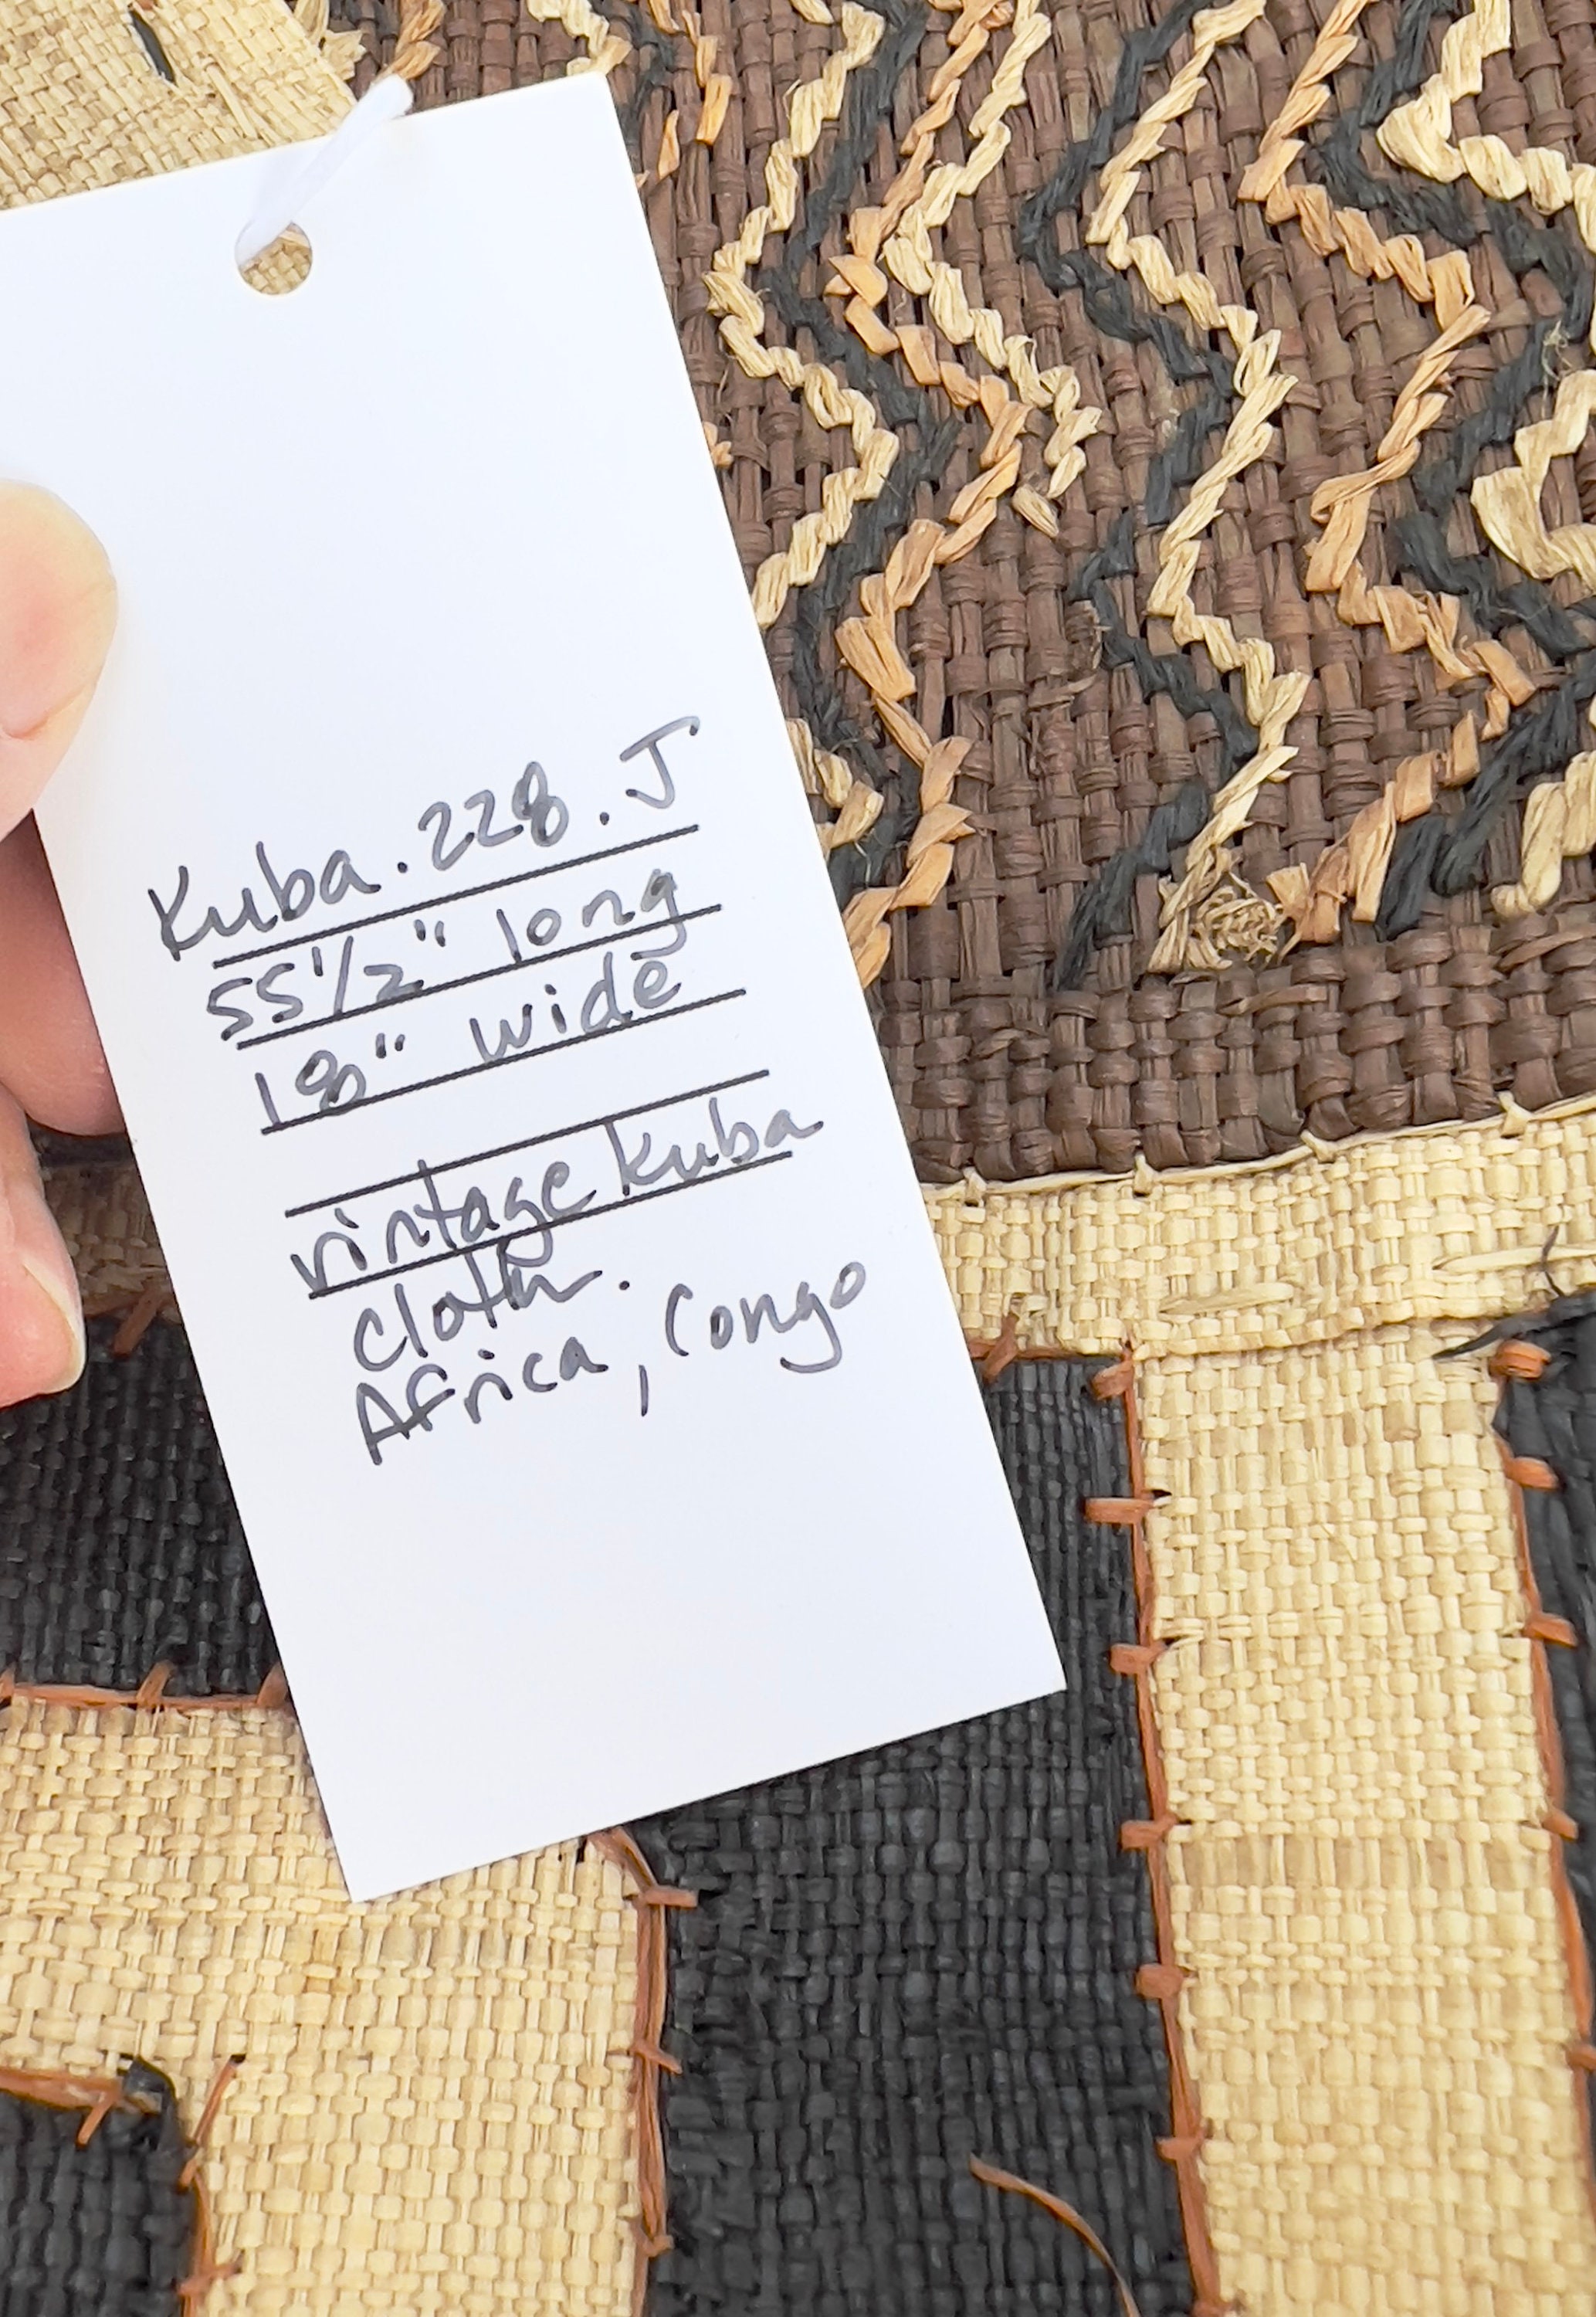 Kuba.228.J
55 1/2" long
18" wide
vintage Kuba
cloth.
Africa, Congo